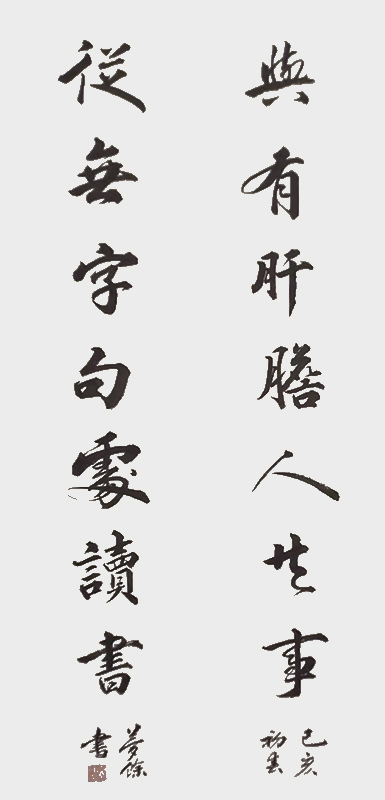 與有肝膽人共事
己亥
初春
從無字句處讀書
夢餘
書